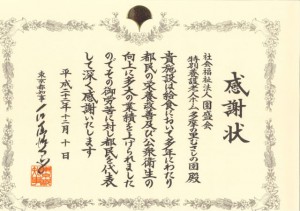 感謝状
社会福祉法人 園盛会
特別養護老人ホーム 多摩の里むさしの園殿
貴施設は給食において多年にわたり
都民の栄養改善及び公衆衛生の
向上に多大の業績を上げられました
のでその御労苦に対し都民を代表
して深く感謝いたします
平成二十二年十一月十日
東京都知事